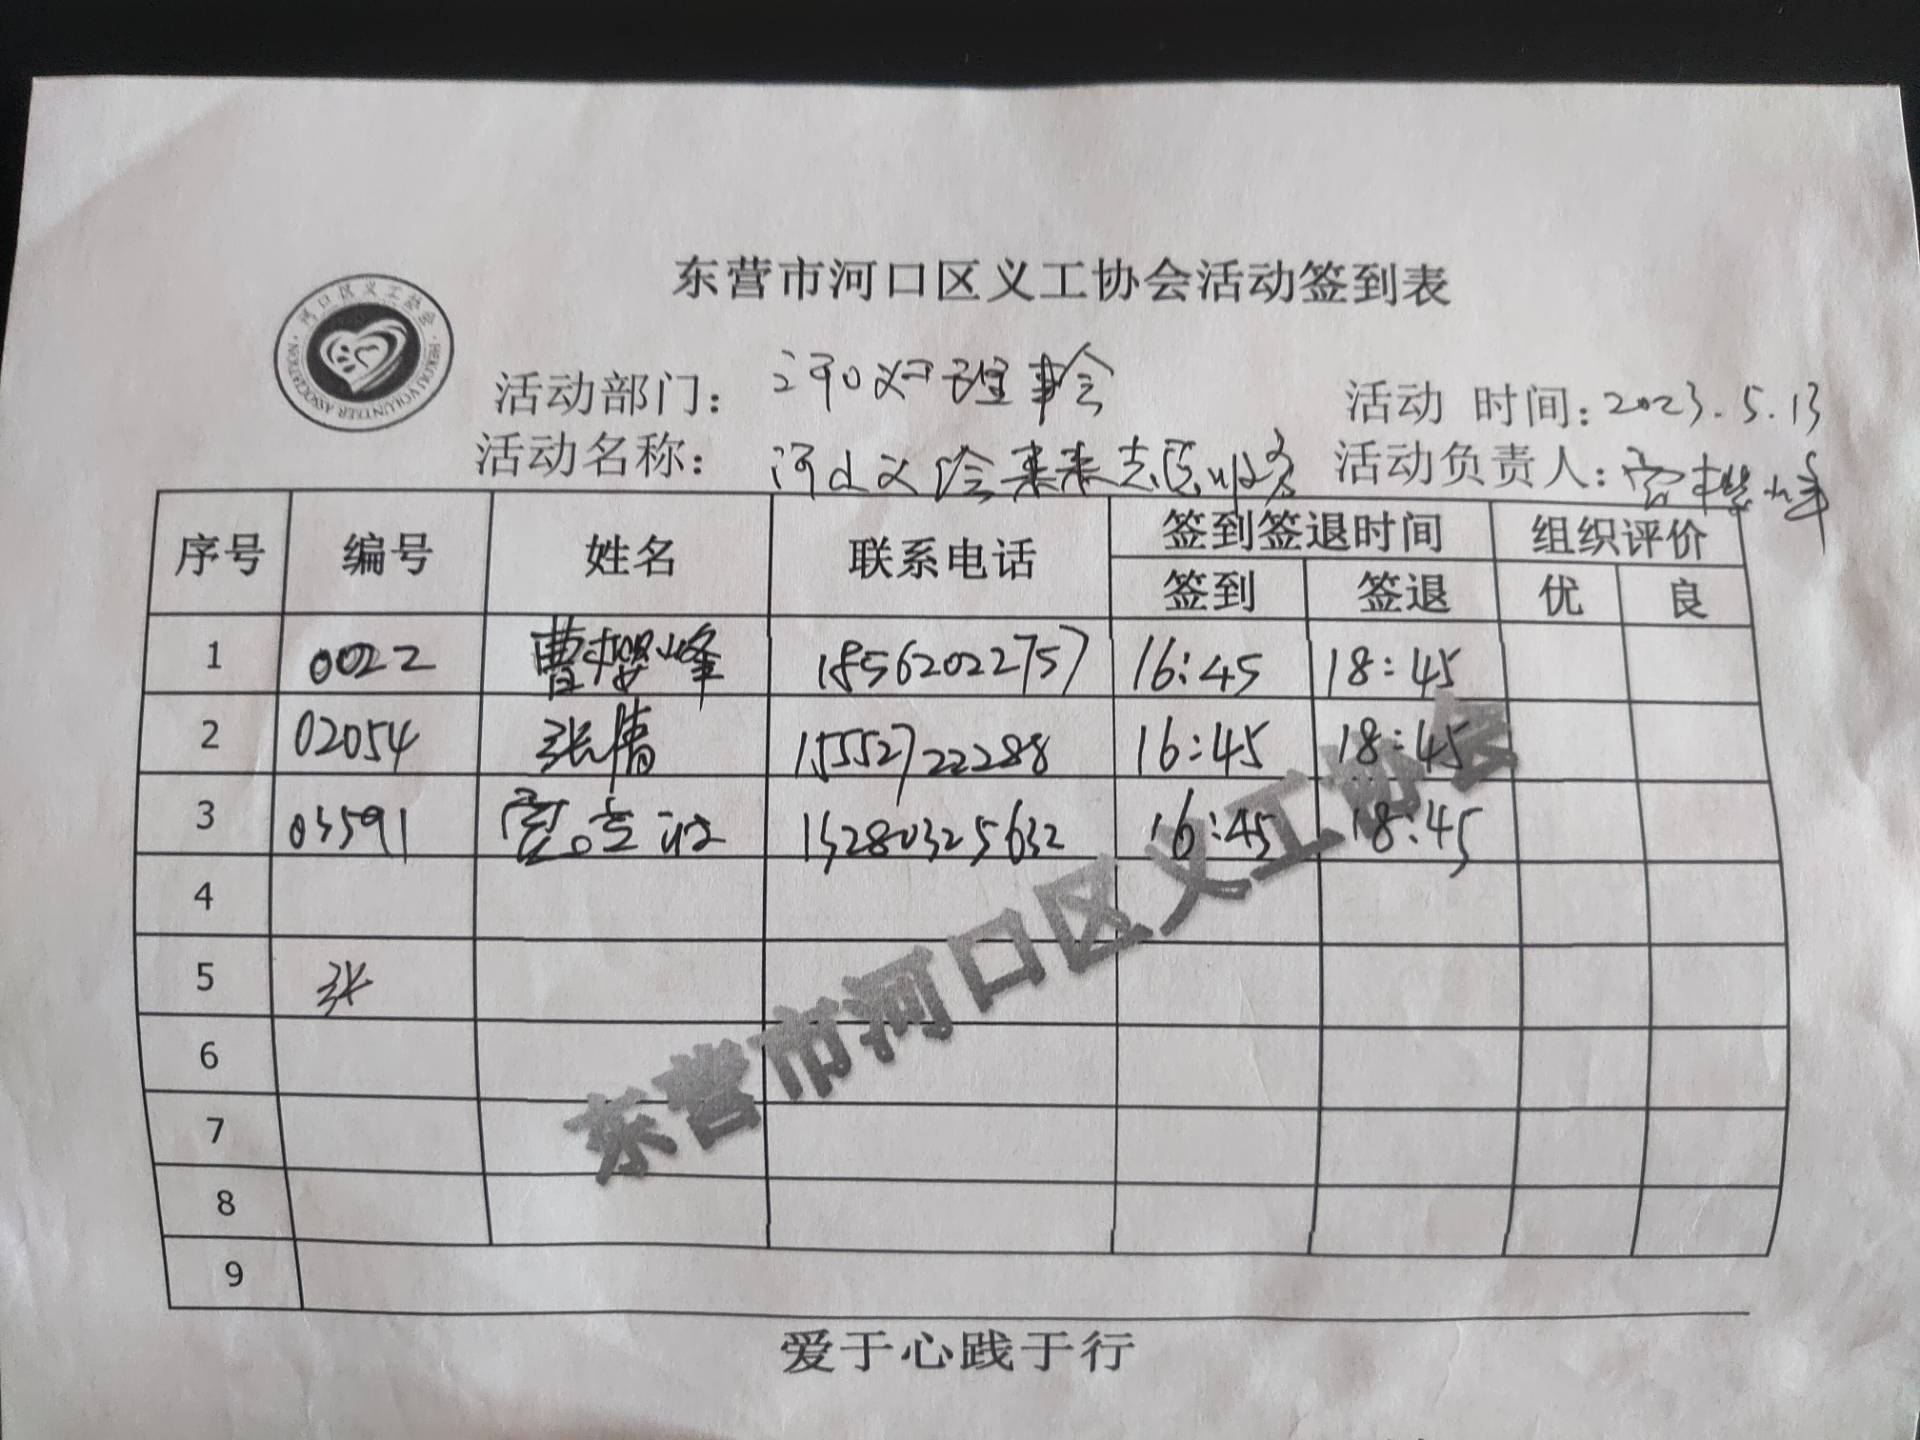 东营市河口区义工协会活动签到表
河口区义工协会
HEKOU VOLUNTEER ASSOCIATION
活动部门： 理事会
活动 时间：2023.5.13
活动名称：
活动负责人：
序号 编号 姓名 联系电话 签到签退时间 组织评价
签到 签退 优 良
1 0022 曹樱峰 18562022757 16:45 18:45
2 02054 张倩 15552722288 16:45 18:45
3 03591 15280325632 16:45 18:45
4
5 张
6
7
8
9
东营市河口区义工协会
爱于心践于行